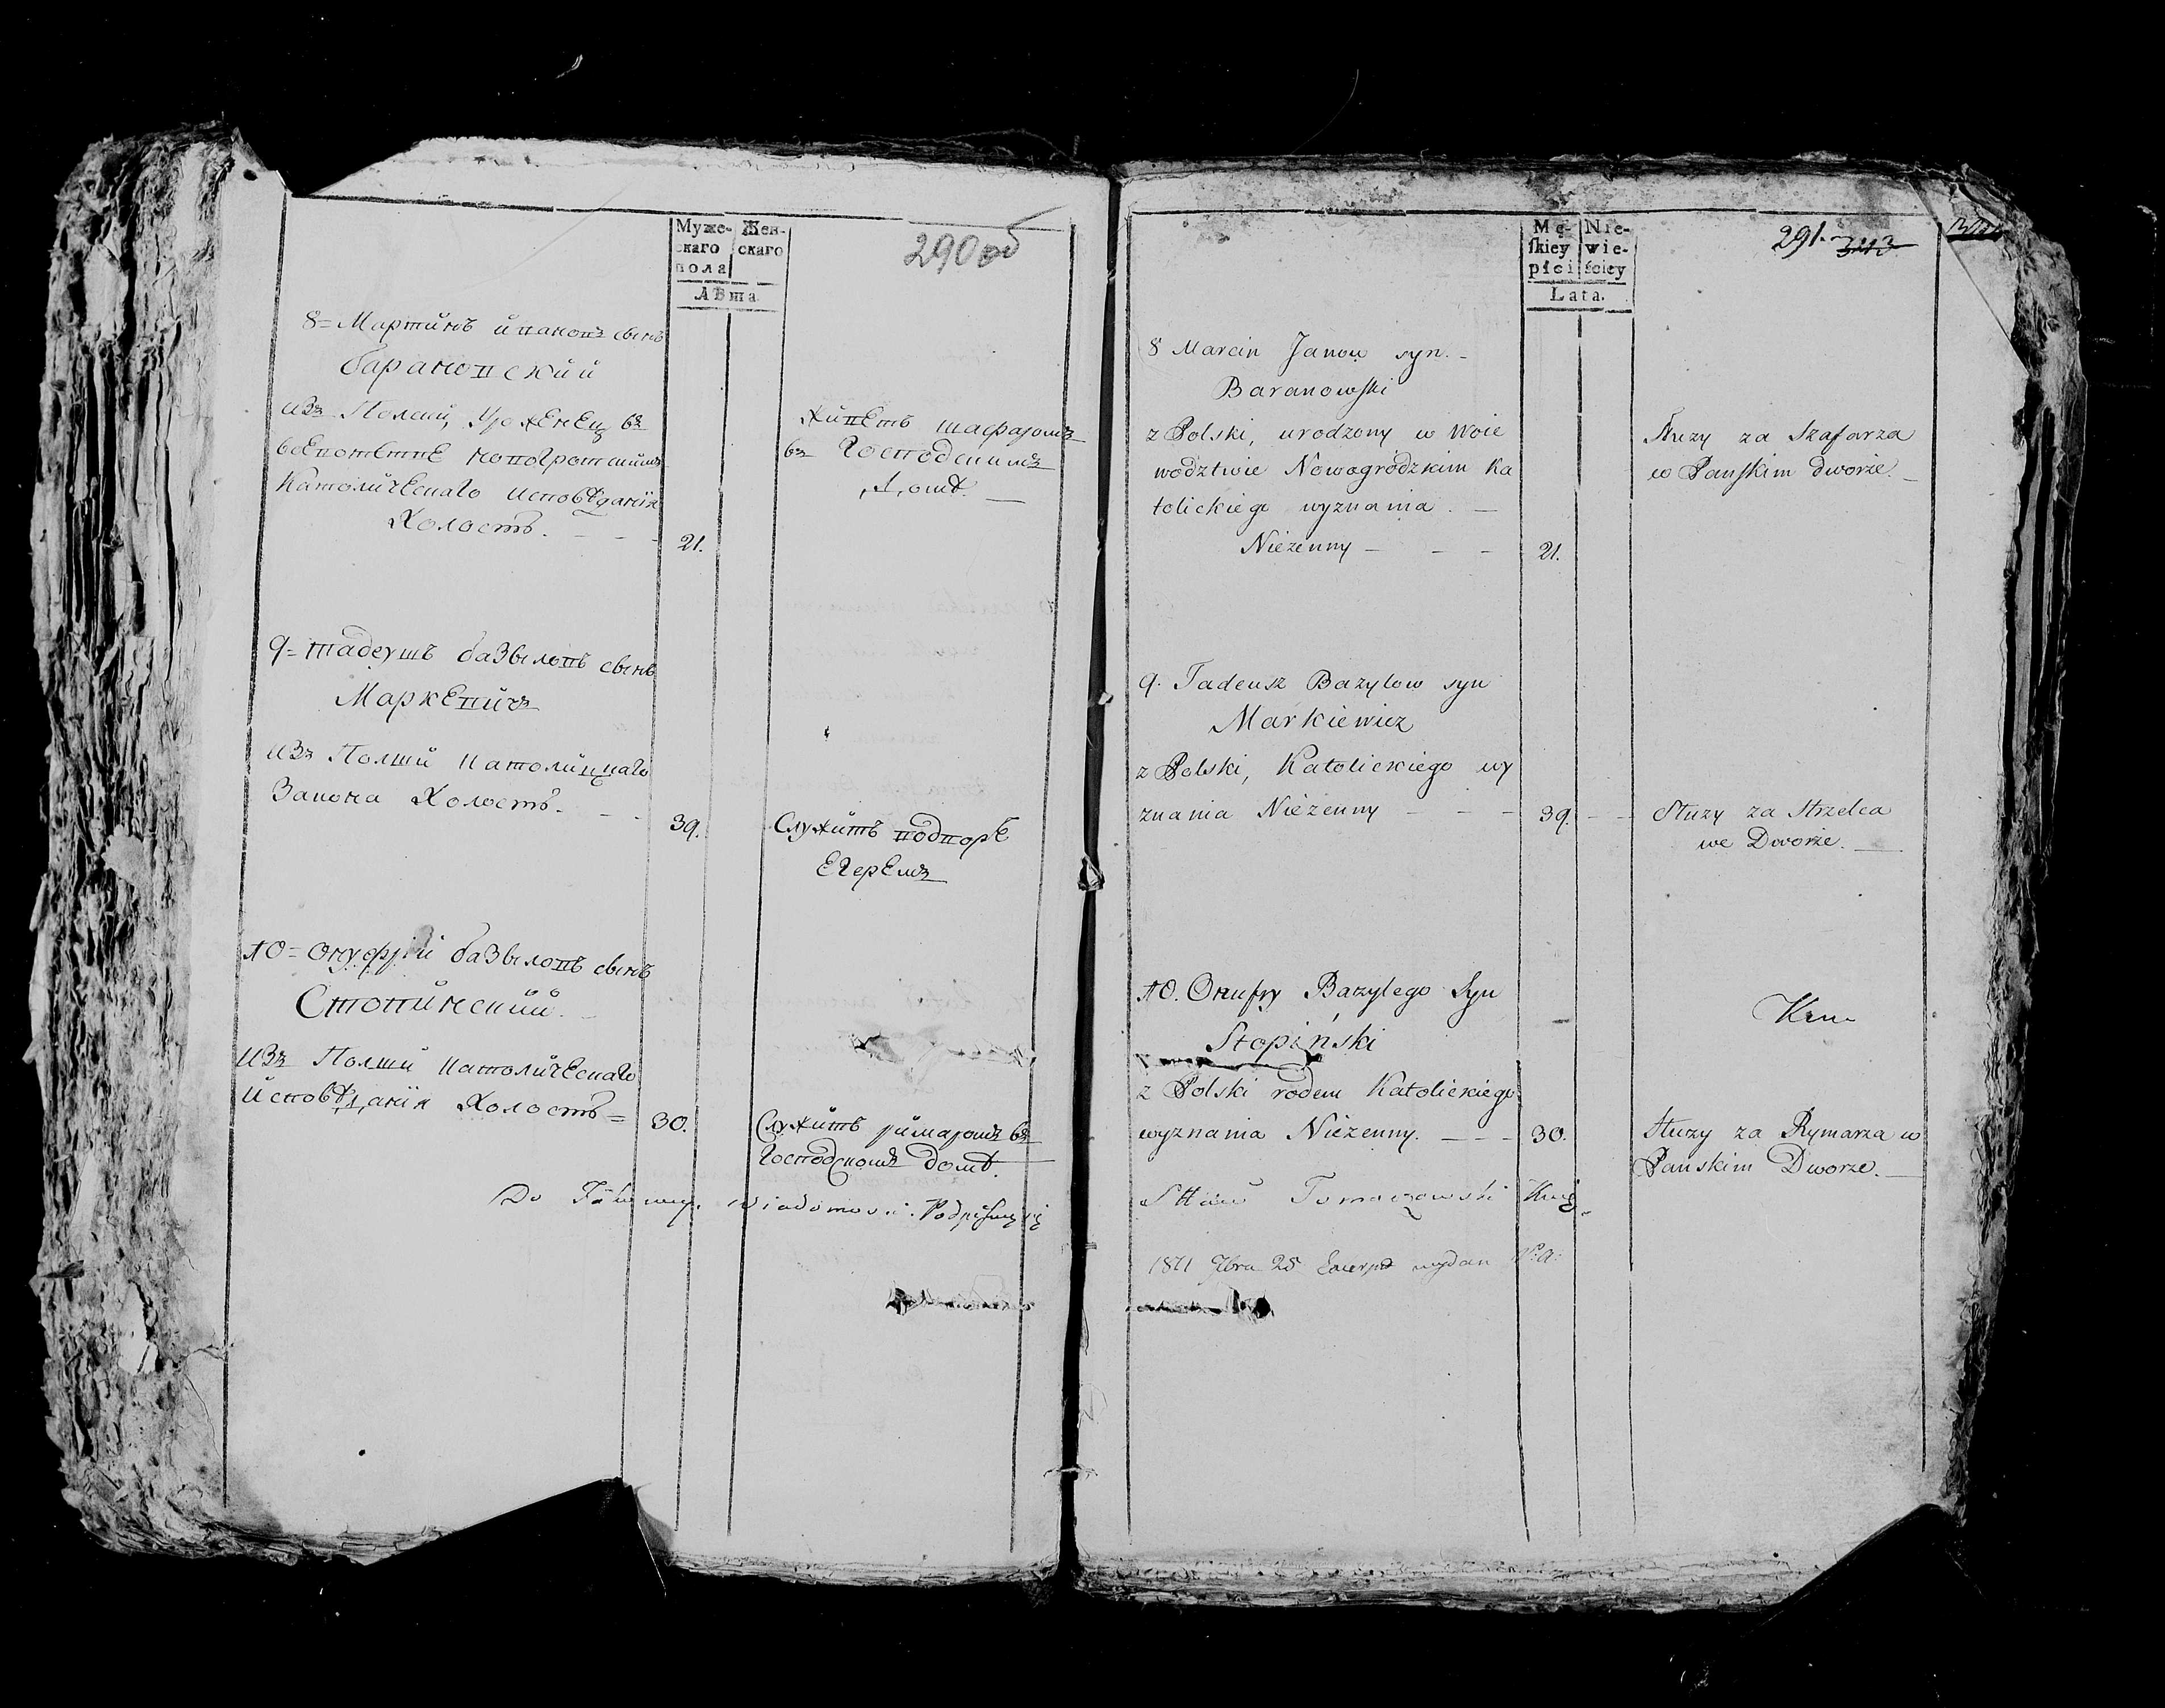 Муже-
скаго
пола
Жен-
скаго
Лѣта.
290 об
8= Мартинъ ивановъ сынъ
барановский
изъ Полши, Уроженец въ
воеводстве новогротскимъ
Католическаго исповѣданія
Холостъ. - - - 21.
живетъ шафаромъ
въ Господскимъ
домѣ. —
9= тадеушъ базыловъ сынъ
Маркевичъ
изъ Полши католицкаго
Закона Холостъ. - - 39.
Служитъ подворе
Егеремъ
10= Онуфрій базыловъ сынъ
Стопинский.
изъ Полши католическаго
исповѣданія Холостъ= 30.
Служитъ римаромъ въ
Господскомъ домѣ.
Do wiadomosci. Podpisuię się
Mę-
skiey
płci
Nie-
wie-
ściey
Lata.
291. 343
8 Marcin Janow syn. -
Baranowski
z Polski, urodzony w Woie
wodztwie Nowogrodzkim Ka
tolickiego wyznania. —
Nieżenny - - - 21.
Służy za Szafarza
w Pańskim dworze. —
9. Tadeusz Bazylow syn
Markiewicz
z Polski, Katolickiego wy
znania Nieżenny - - - 39. - -
Służy za Strzelca
we Dworze. —
10. Onufry Bazylego Syn
Stopiński
z Polski rodem Katolickiego
wyznania Nieżenny. - - - 30.
Służy za Rymarza w
Pańskim Dworze. —
Tomaszewski
1811 25 wydan